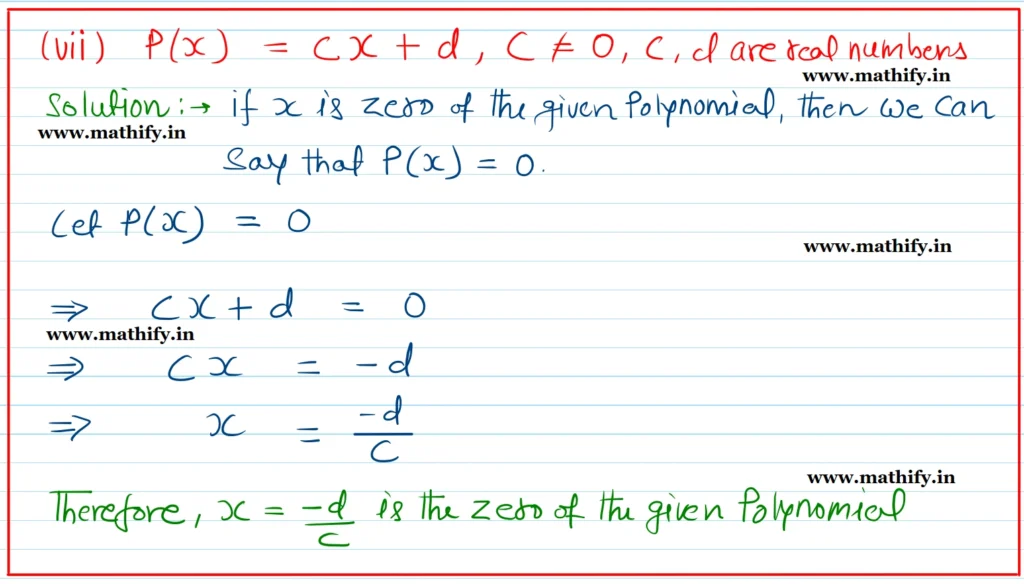 (vii) P(x) = Cx + d, C ≠ 0, C, d are real numbers
www.mathify.in
Solution :→ if x is zero of the given Polynomial, then we can
www.mathify.in
Say that P(x) = 0.
Let P(x) = 0
www.mathify.in
⇒ Cx + d = 0
www.mathify.in
⇒ Cx = -d
⇒ x = -d/C
www.mathify.in
Therefore, x = -d/C is the zero of the given Polynomial